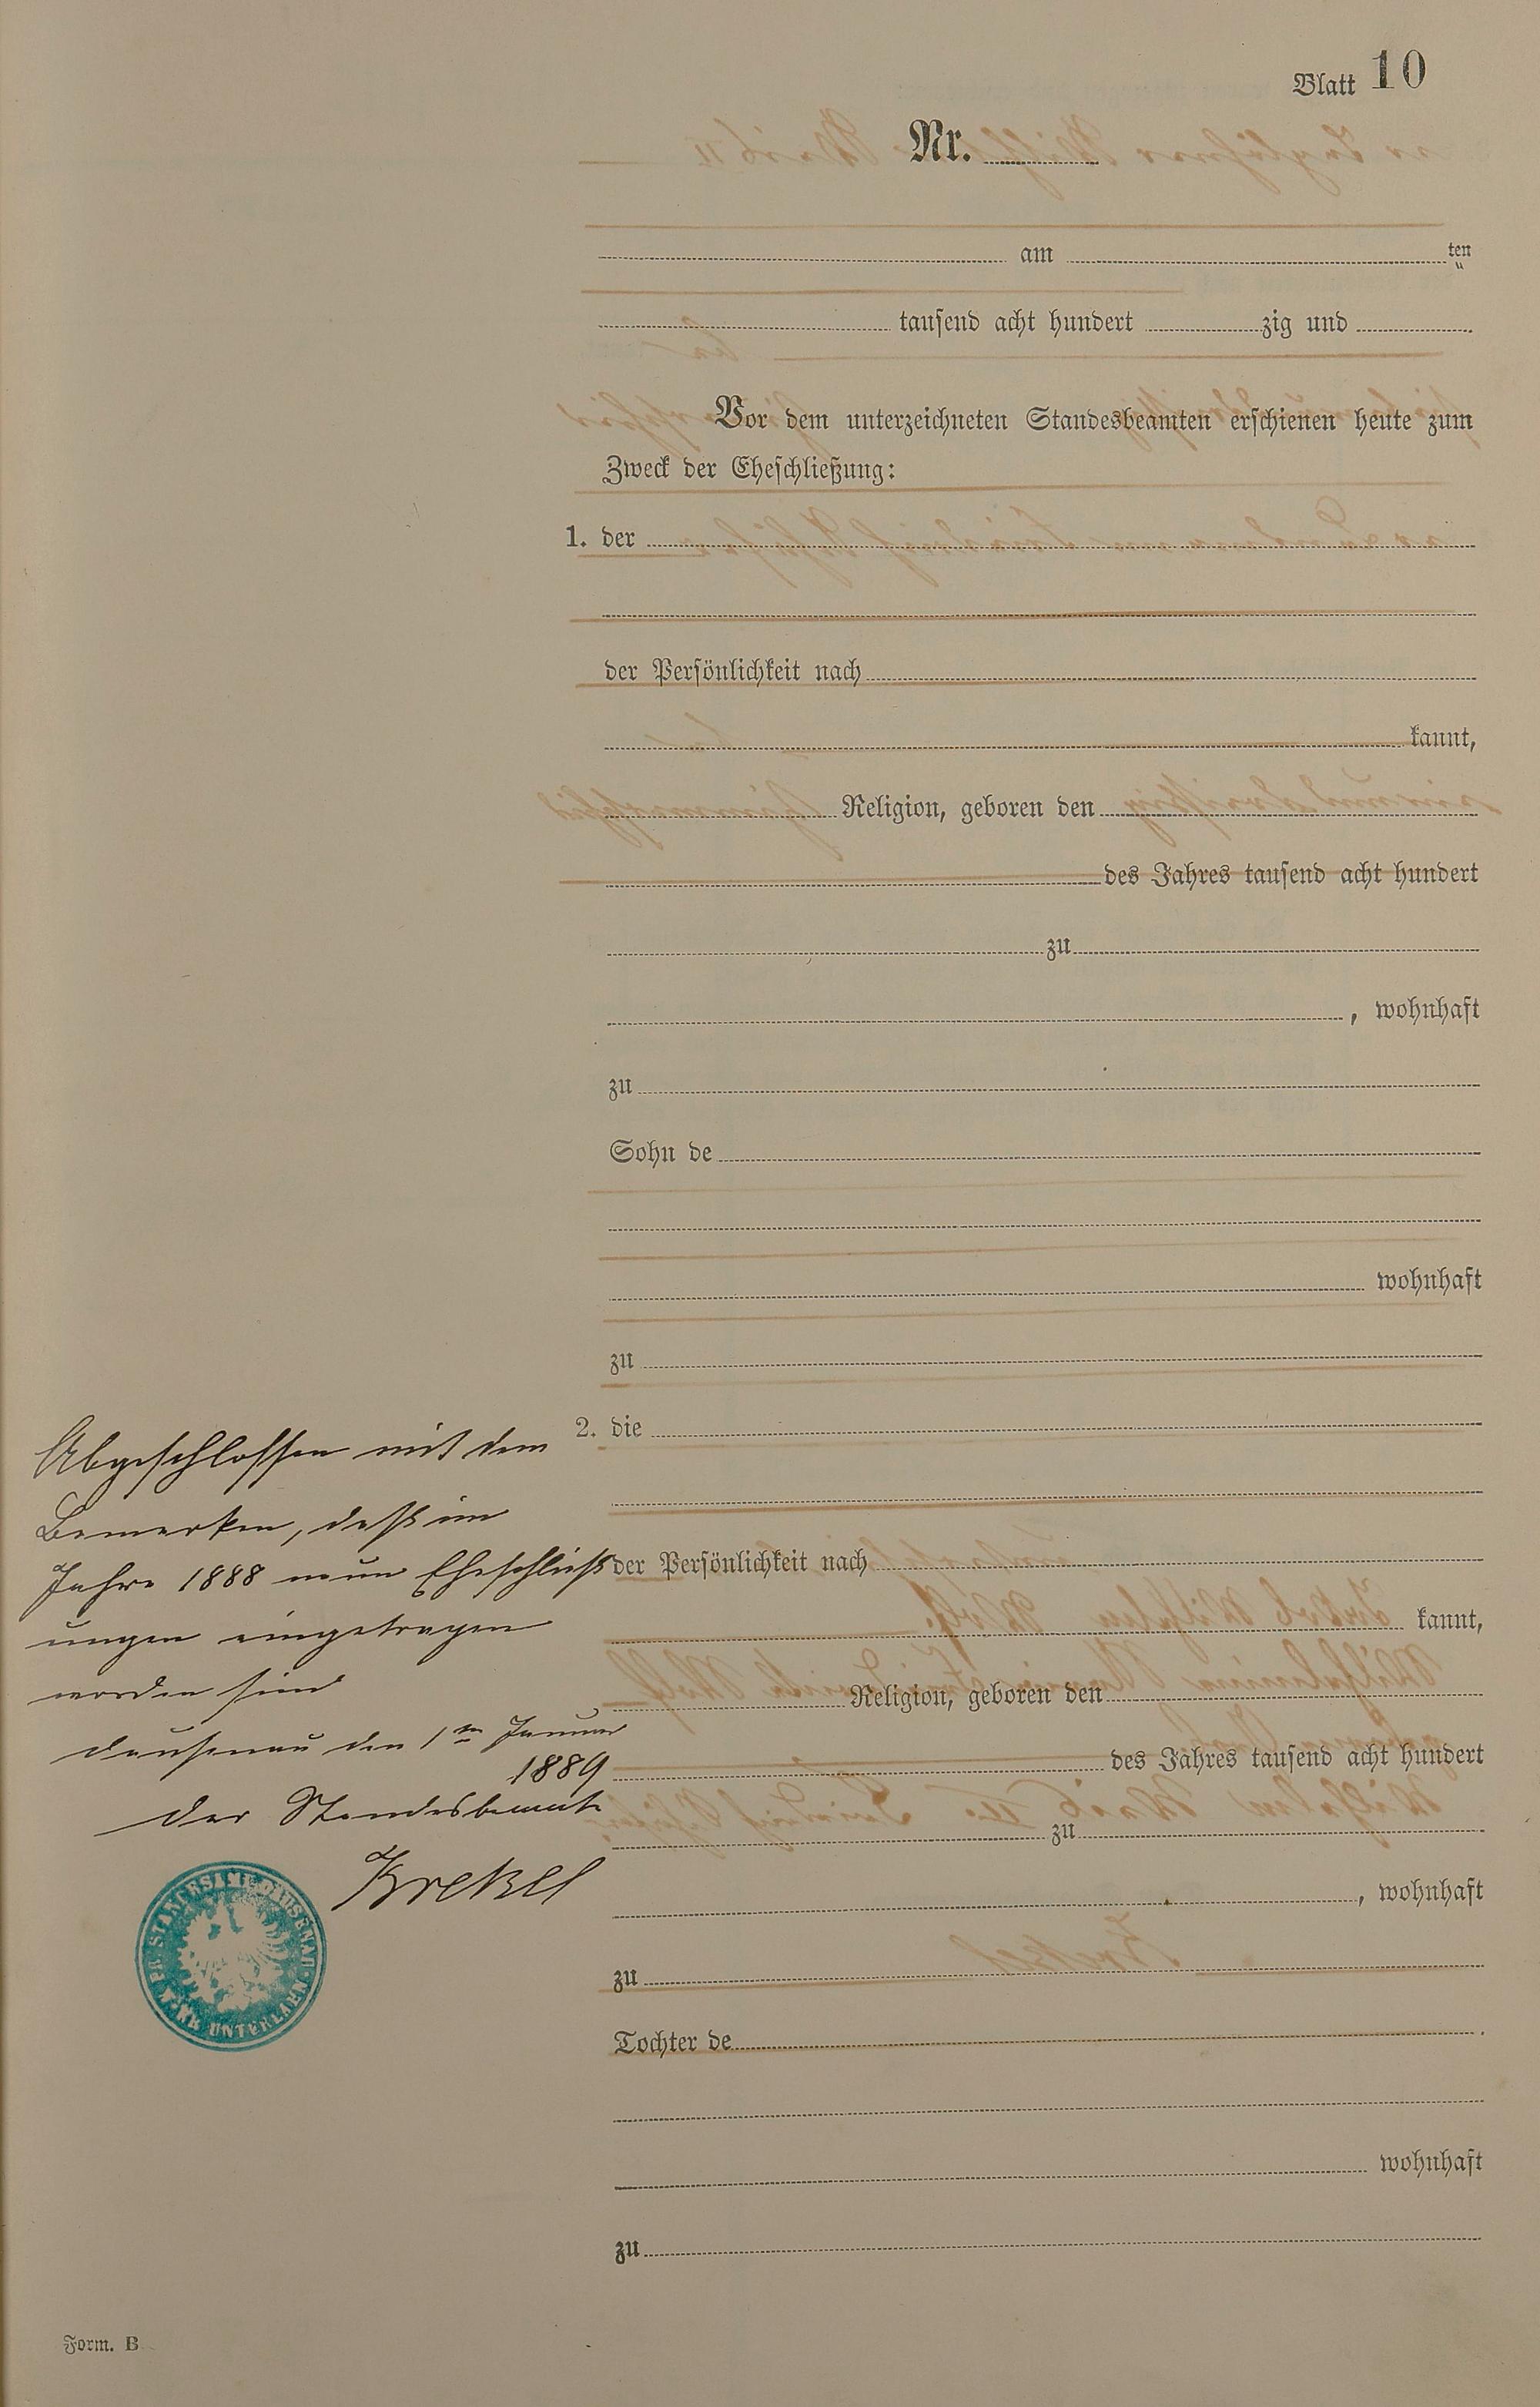 Blatt 10
Nr.
am ten
tausend acht hundert zig und
Vor dem unterzeichneten Standesbeamten erschienen heute zum
Zweck der Eheschließung:
1. der
der Persönlichkeit nach
kannt,
Religion, geboren den
des Jahres tausend acht hundert
zu
, wohnhaft
zu
Sohn de
wohnhaft
zu
2. die
der Persönlichkeit nach
kannt,
Religion, geboren den
des Jahres tausend acht hundert
zu
, wohnhaft
zu
Tochter de
wohnhaft
zu
Abgeschlossen mit dem
Bemerken, daß im
Jahre 1888 neun Eheschließ
ungen eingetragen
worden sind
Dausenau den 1ten Januar
1889
Der Standesbeamte
Krekel
STANDESAMT DAUSENAU
UNTERLAHN
Form. B